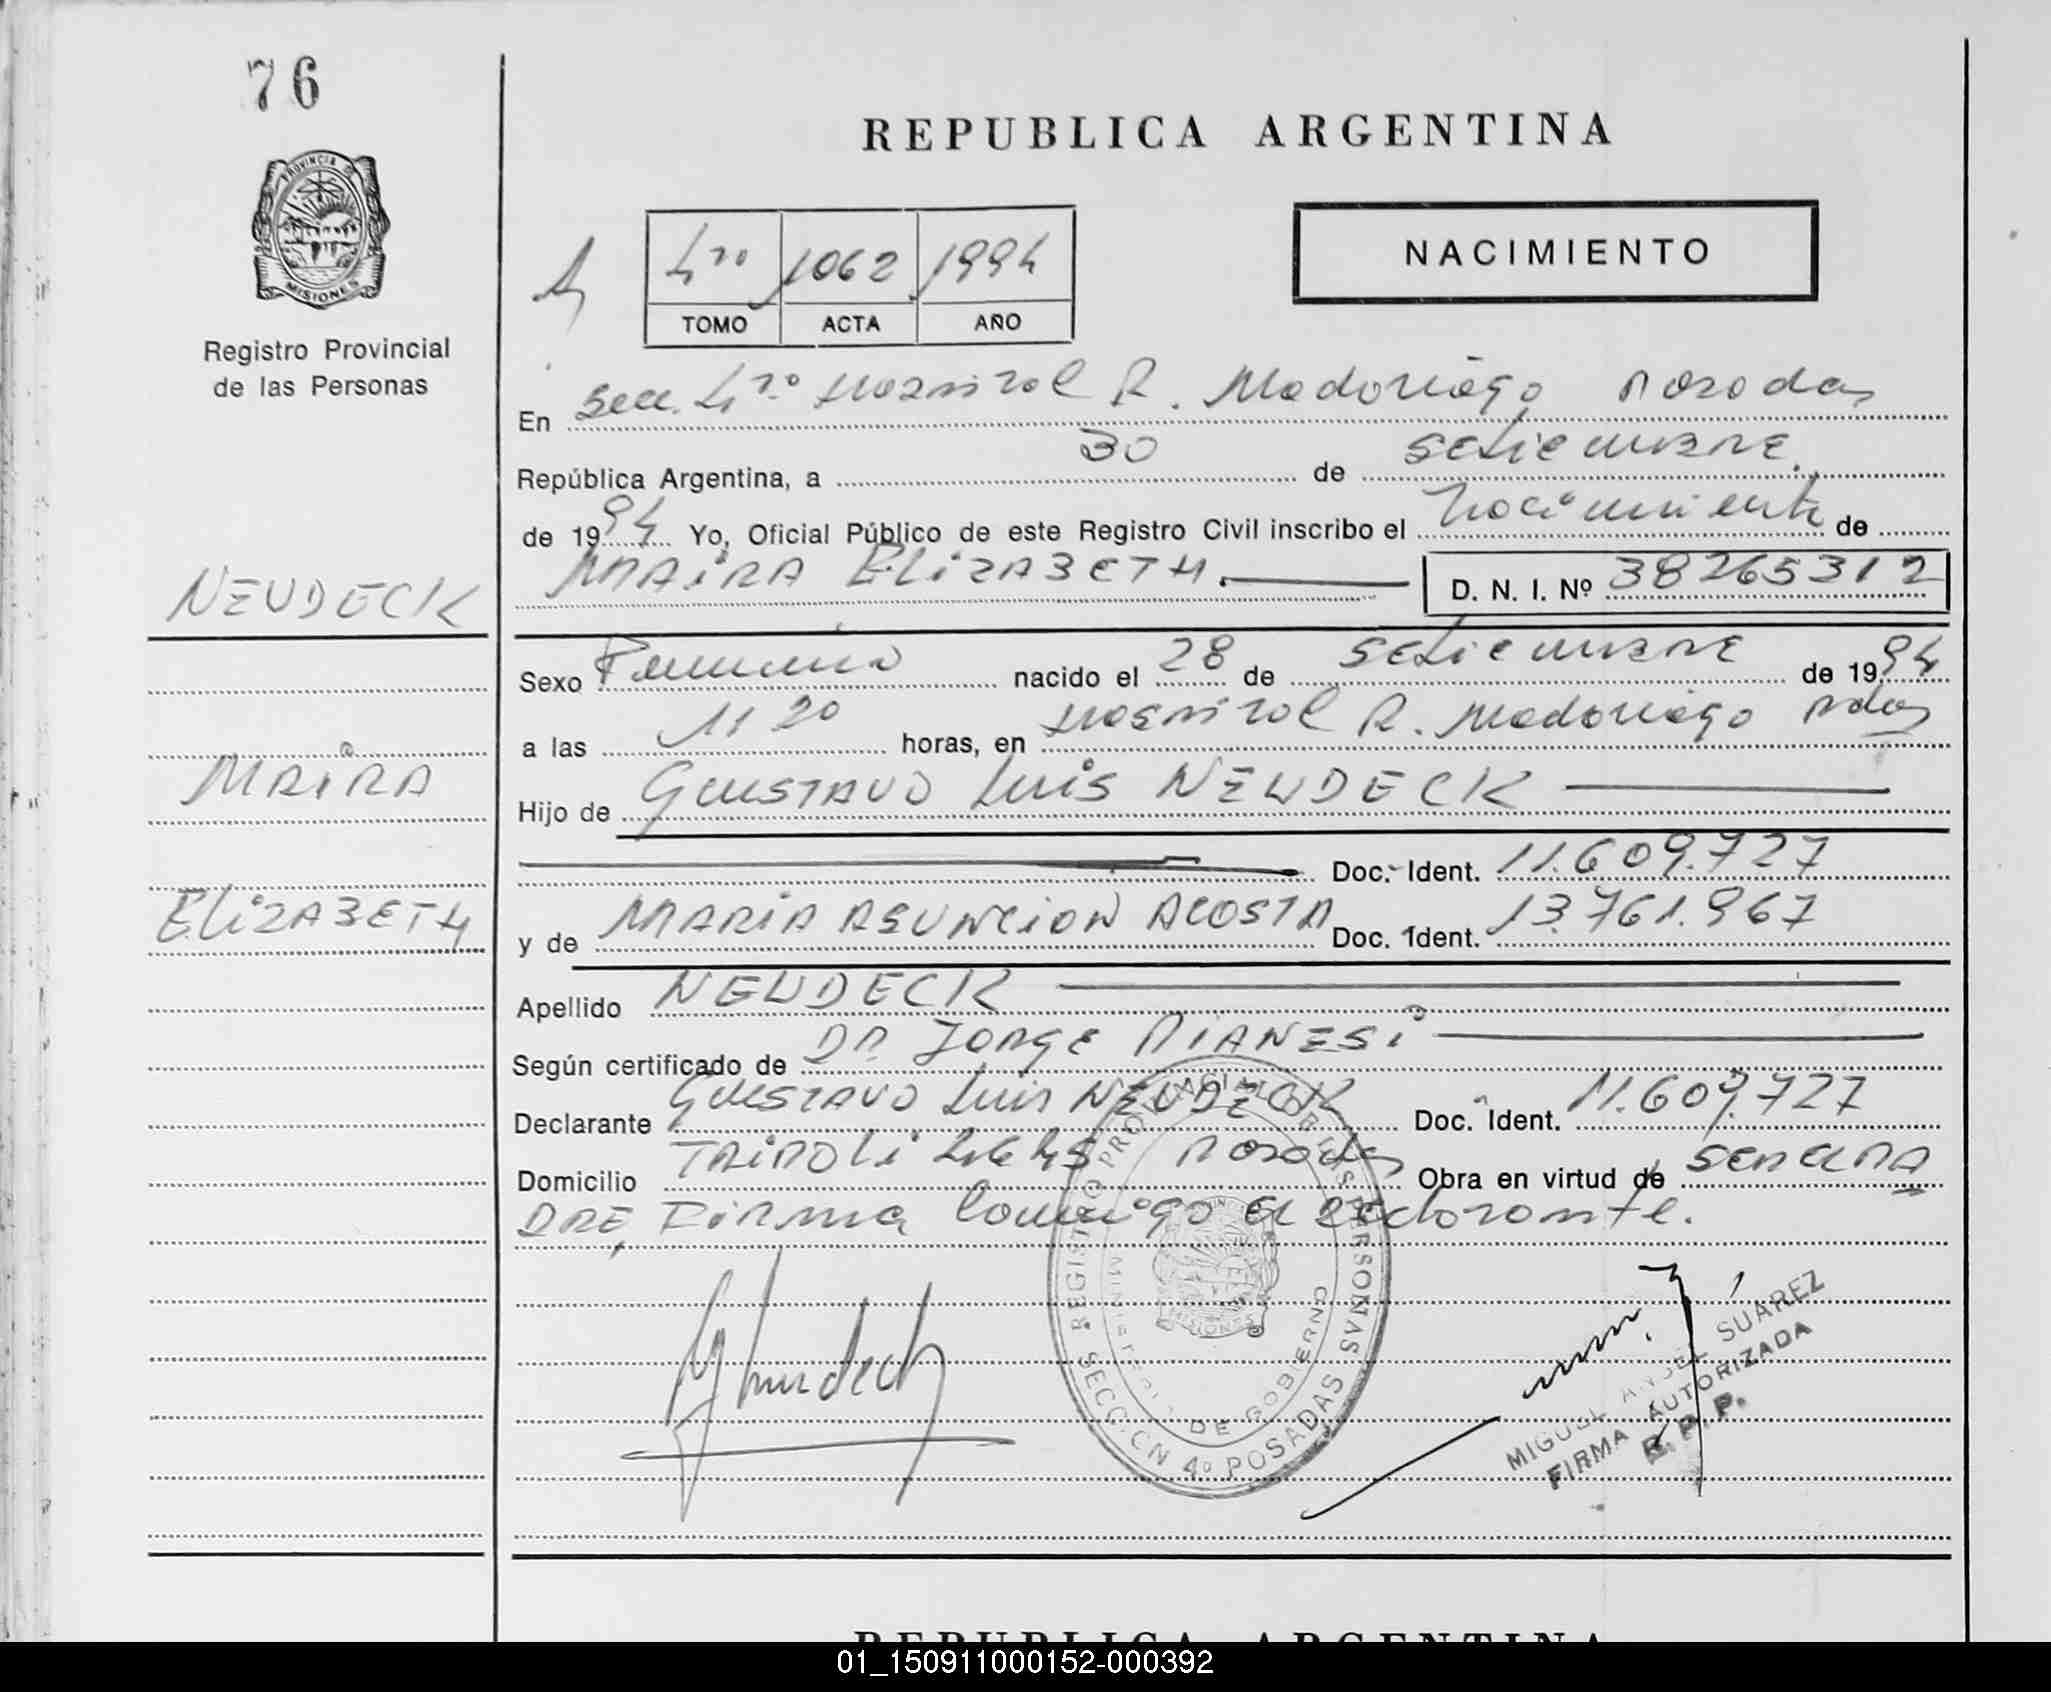 76
PROVINCIA DE
MISIONES
Registro Provincial
de las Personas
REPUBLICA ARGENTINA
NACIMIENTO
4ro 1062 1994
TOMO ACTA AÑO
En Secc. 4ta Hospital R. Madariaga Posadas
República Argentina, a 30 de setiembre.
de 1994 Yo, Oficial Público de este Registro Civil inscribo el Nacimiento de
MAIRA ELIZABETH. D. N. I. Nº 38265312
NEUDECK
Sexo Femenino nacido el 28 de setiembre de 1994
a las 11 20 horas, en Hospital R. Madariaga Pdas
MAIRA
Hijo de GUSTAVO Luis NEUDECK
Doc. Ident. 11.609.727
ELIZABETH
y de MARIA ASUNCION ACOSTA Doc. Ident. 13.761.967
Apellido NEUDECK
Según certificado de DR. JORGE PIANESI
Declarante GUSTAVO Luis NEUDECK Doc. Ident. 11.609.727
Domicilio TRIPOLI 4645 Posadas Obra en virtud de SER EL PA
DRE, Firma conmigo el declarante.
REGISTRO PROVINCIAL DE LAS PERSONAS
MINISTERIO DE GOBIERNO
MISIONES
SECCION 4º POSADAS
MIGUEL ANGEL SUAREZ
FIRMA AUTORIZADA
R. P. P.
REPUBLICA ARGENTINA
01_150911000152-000392